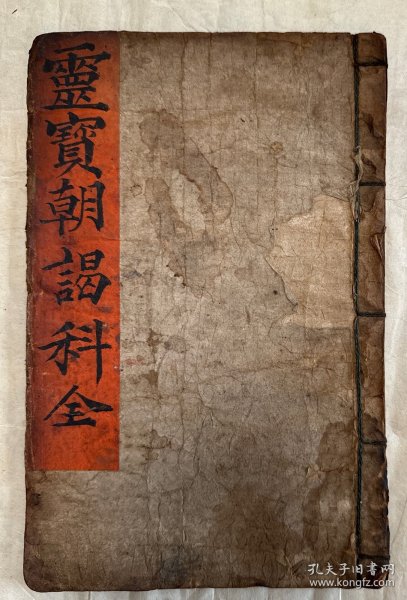 靈寶朝謁科全
孔夫子旧书网
www.kongfz.com